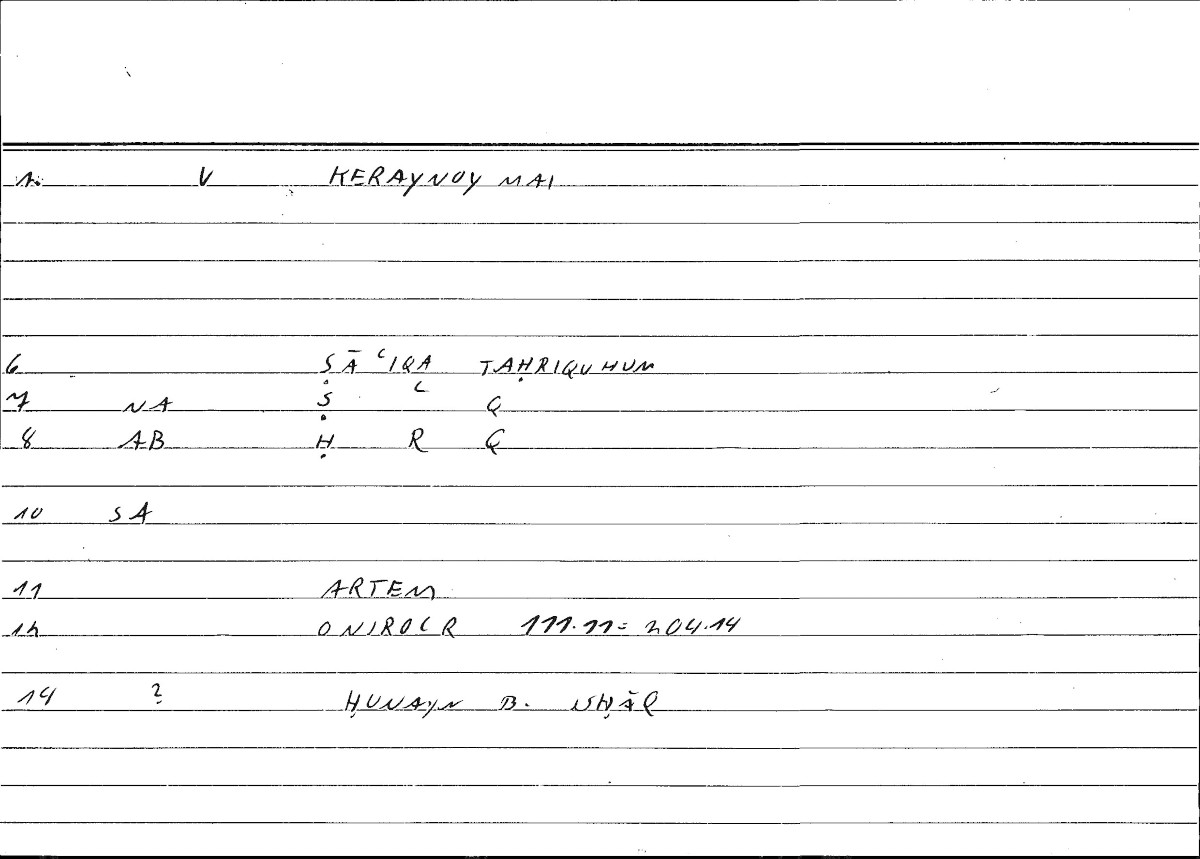 1. V KERAYNOY MAI
6 ṢĀʿIQA TAḤRIQUHUM
7 NA Ṣ ʿ Q
8 AB Ḥ R Q
10 SA
11 ARTEM
12 ONIROCR 111.11 = 204.14
14 ? ḤUNAYN B. ISḤĀQ